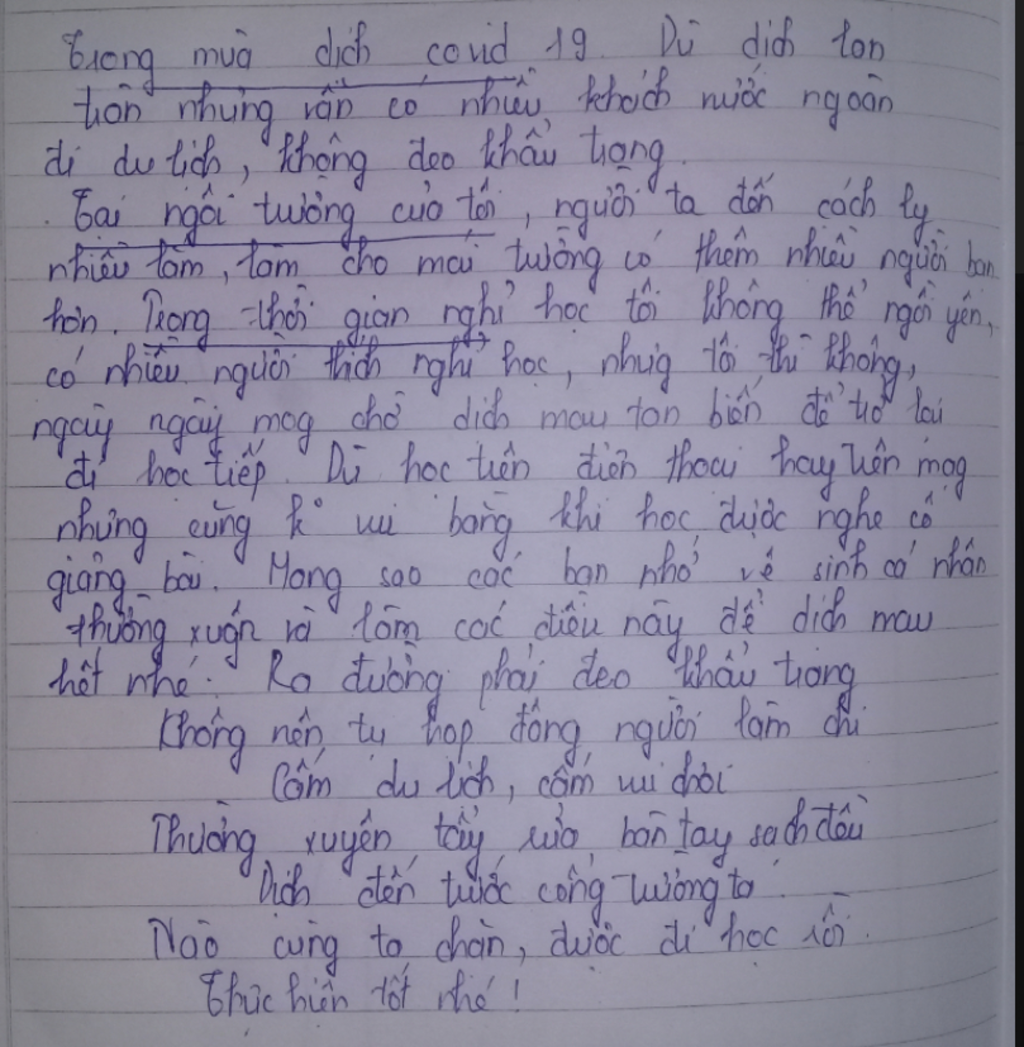 Trong mùa dịch covid 19. Dù dịch lan
tràn nhưng vẫn có nhiều khách nước ngoàn
đi du lịch, không đeo khẩu trang.
Tại ngôi trường của tôi, người ta đến cách ly
nhiều lắm, làm cho mái trường có thêm nhiều người bạn
hơn. Trong thời gian nghỉ học tôi không thể ngồi yên,
có nhiều người thích nghỉ học, nhưg tôi thì không,
ngày ngày mog chờ dịch mau tan biến để trở lại
đi học tiếp. Dù học trên điện thoại hay trên mạg
nhưng cũng k° vui bằng khi học được nghe cô
giảng bài. Mong sao các bạn nhớ vệ sinh cá nhân
thường xuyên và làm các điều này để dịch mau
hết nhé: Ra đường phải đeo khẩu trang
Không nên tụ họp đông người làm chi
Cấm du lịch, cấm vui chơi
Thường xuyên tẩy rửa bàn tay sạch đều
Dịch đến trước cổng trường ta
Nào cùng ta chặn, được đi học rồi.
Thực hiện tốt nhé!